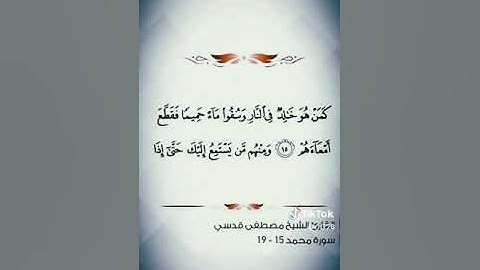 كَمَنْ هُوَ خَٰلِدٌ فِي ٱلنَّارِ وَسُقُوا۟ مَآءً حَمِيمًا فَقَطَّعَ
أَمْعَآءَهُمْ ١٥ وَمِنْهُم مَّن يَسْتَمِعُ إِلَيْكَ حَتَّىٰٓ إِذَا
TikTok
الشيخ مصطفى قدسي
سورة محمد 15 - 19